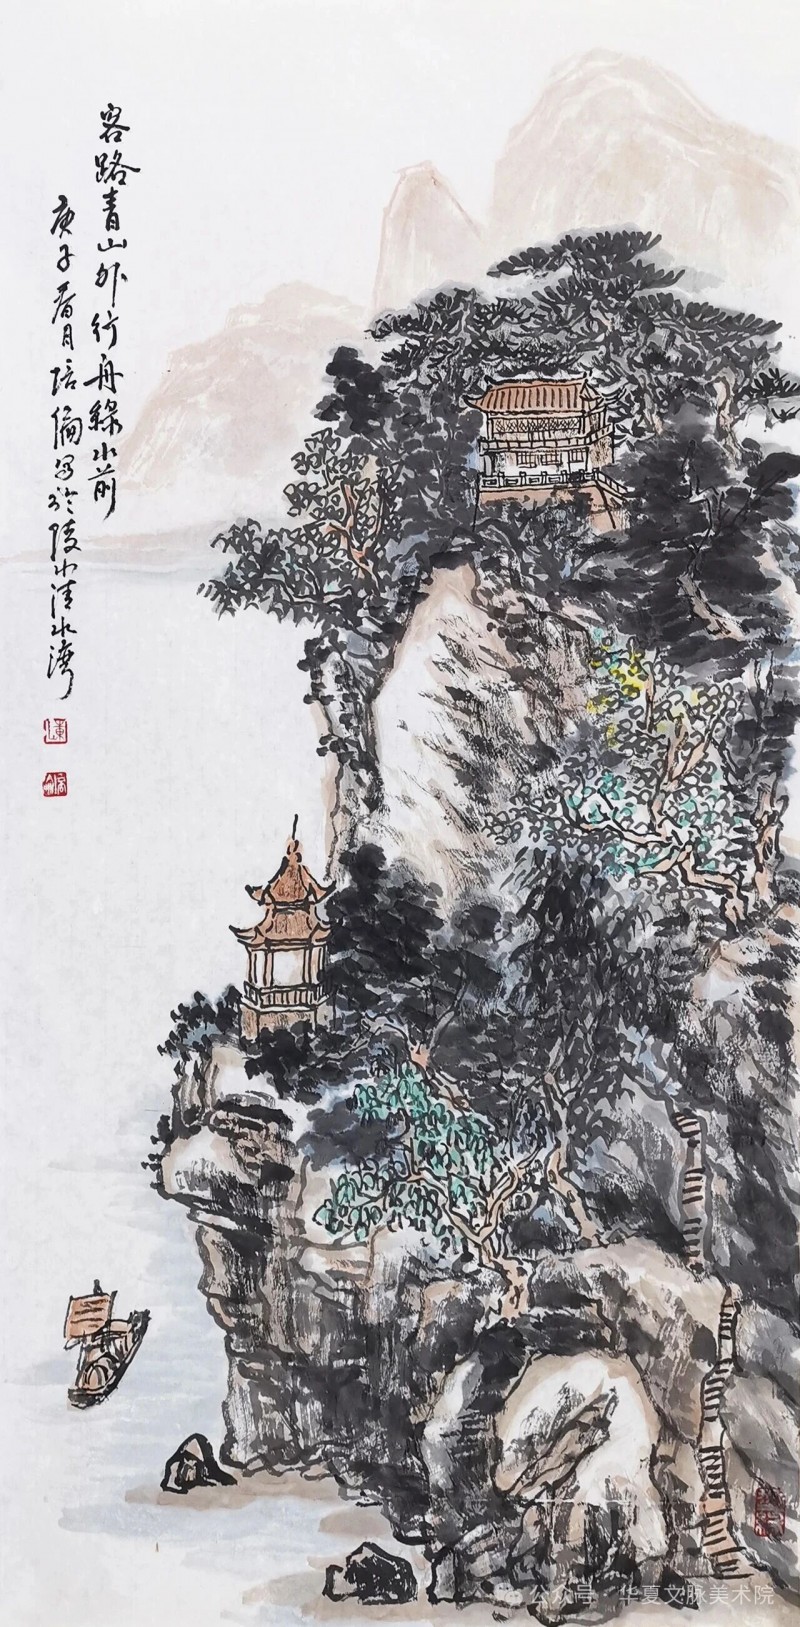 客路青山外行舟綠水前
庚子春月培倫寫於陵水清水湾
公众号·华夏文脉美术院